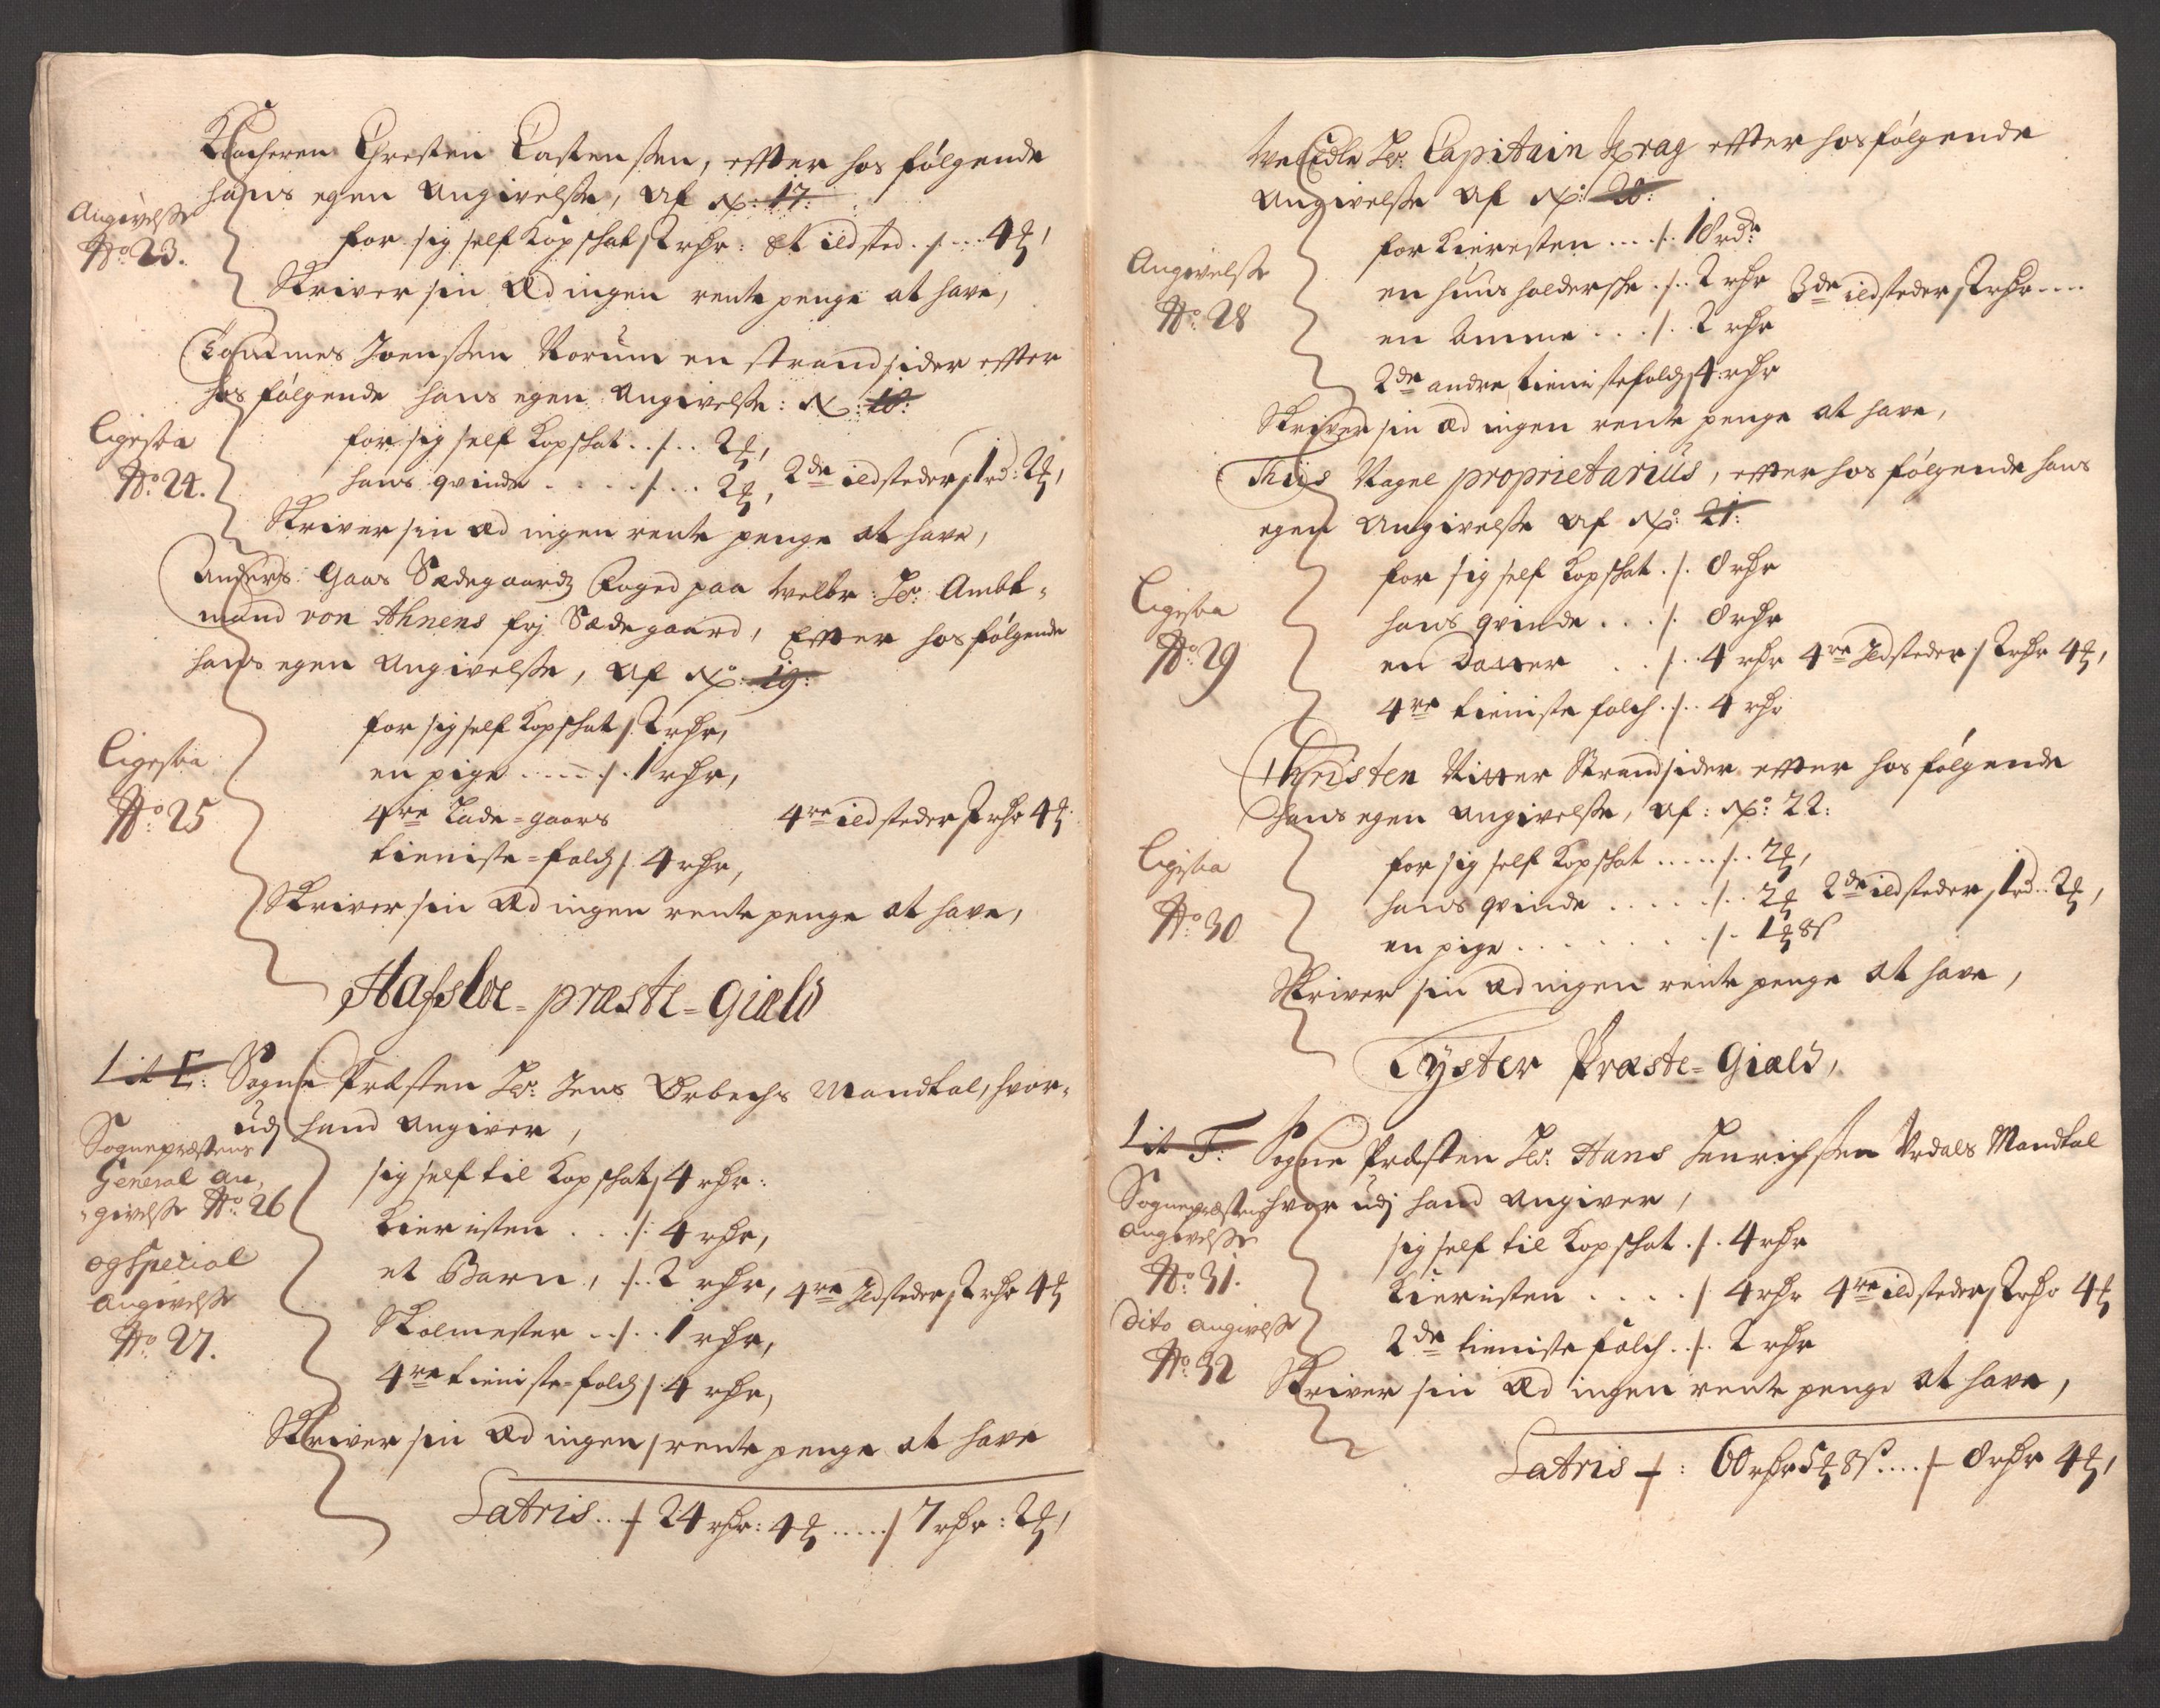 Klocheren Chresten Castensen, efter hos følgende
hans egen Angivelse, Af No: 17:
Angivelse
No: 23.
for sig self Kopschat / 2 rdr: Et ildsted ./... 4 ꝑ,
Skriver sin Æd ingen rente penge at have,
Joensen en strandsider efter
hos følgende hans egen Angivelse: No: 18:
Ligesaa
No: 24.
for sig self Kopschat ../.. 2 ꝑ,
hans qvinde ...../... 2 ꝑ, 2de ildsteder / 1 rd: 2 ꝑ,
Skriver sin Æd ingen rente penge at have,
Anders Gaas Sædegaards Foged paa Welbr: Hr: Ambt-
mand von Ahnens frj Sædegaard, Efter hos følgende
hans egen Angivelse, Af No: 19:
for sig self Kopschat / 2 rdr,
Ligesaa
No: 25
en pige ...../. 1 rdr,
4re Lade-gaars 4re ildsteder / 2 rdr 4 ꝑ
tieniste-folch /. 4 rdr,
Skriver sin Æd ingen rente penge at have,
Hafsloe-præste-Gield
Lit E: Sogne Præsten Hr: Jens Ørbechs Mandtal, hvor-
udj hand Angiver,
Sognepræstens
General an-
givelse No: 26
og Special
Angivelse
No: 27.
sig self til Kopschat / 4 rdr:
Kieristen .../: 4 rdr,
et Barn, ./.. 2 rdr, 4re Ildsteder / 2 rdr 4 ꝑ
Skolmester ../.. 1 rdr,
4re tieniste-folch /: 4 rdr,
Skriver sin Æd ingen rente penge at have
Latris .../ 24 rdr: 4 ꝑ ...../ 7 rdr: 2 ꝑ,
WelEdle Hr: Capitain Krag efter hos følgende
Angivelse Af No: 20:
for Kieresten ..../. 18 rdr
Angivelse
No: 28
en huusholdersche ./.. 2 rdr 3de ildsteder / 2 rdr ....
en Amme .../.. 2 rdr
2de andre tienistefolch / 4 rdr
Skriver sin Æd ingen rente penge at have,
Thijs Nagel proprietarius, efter hos følgende hans
egen Angivelse Af No: 21:
for sig self Kopschat ./. 8 rdr
Ligesaa
No: 29
hans qvinde .../. 8 rdr
en Datter ../.. 4 rdr 4re Ildsteder / 2 rdr 4 ꝑ,
4re tieniste folch ./.. 4 rdr
Christen Ritter Strandsider efter hos følgende
hans egen Angivelse, Af: No: 22:
Ligesaa
No: 30
for sig self Kopschat ...../.. 2 ꝑ,
hans qvinde ...../.. 2 ꝑ 2de ildsteder / 1 rd. 2 ꝑ,
en pige ......./. 1 ꝑ 8 s
Skriver sin Æd ingen rente penge at have,
Lyster Præste-Gield,
Lit F: Sogne Præsten Hr: Hans Henrichsen Urdals Mandtal
hvor udj hand Angiver,
Sognepræstens
angivelse
No: 31.
Dito angivelse
No: 32
sig self til Kopschat ./. 4 rdr
Kieristen ..../ 4 rdr 4re ildsteder / 2 rdr 4 ꝑ
2de tieniste folch ../. 2 rdr
Skriver sin Æd ingen rente penge at have,
Latris /: 60 rdr 5 ꝑ 8 s ..../ 8 rdr 4 ꝑ,